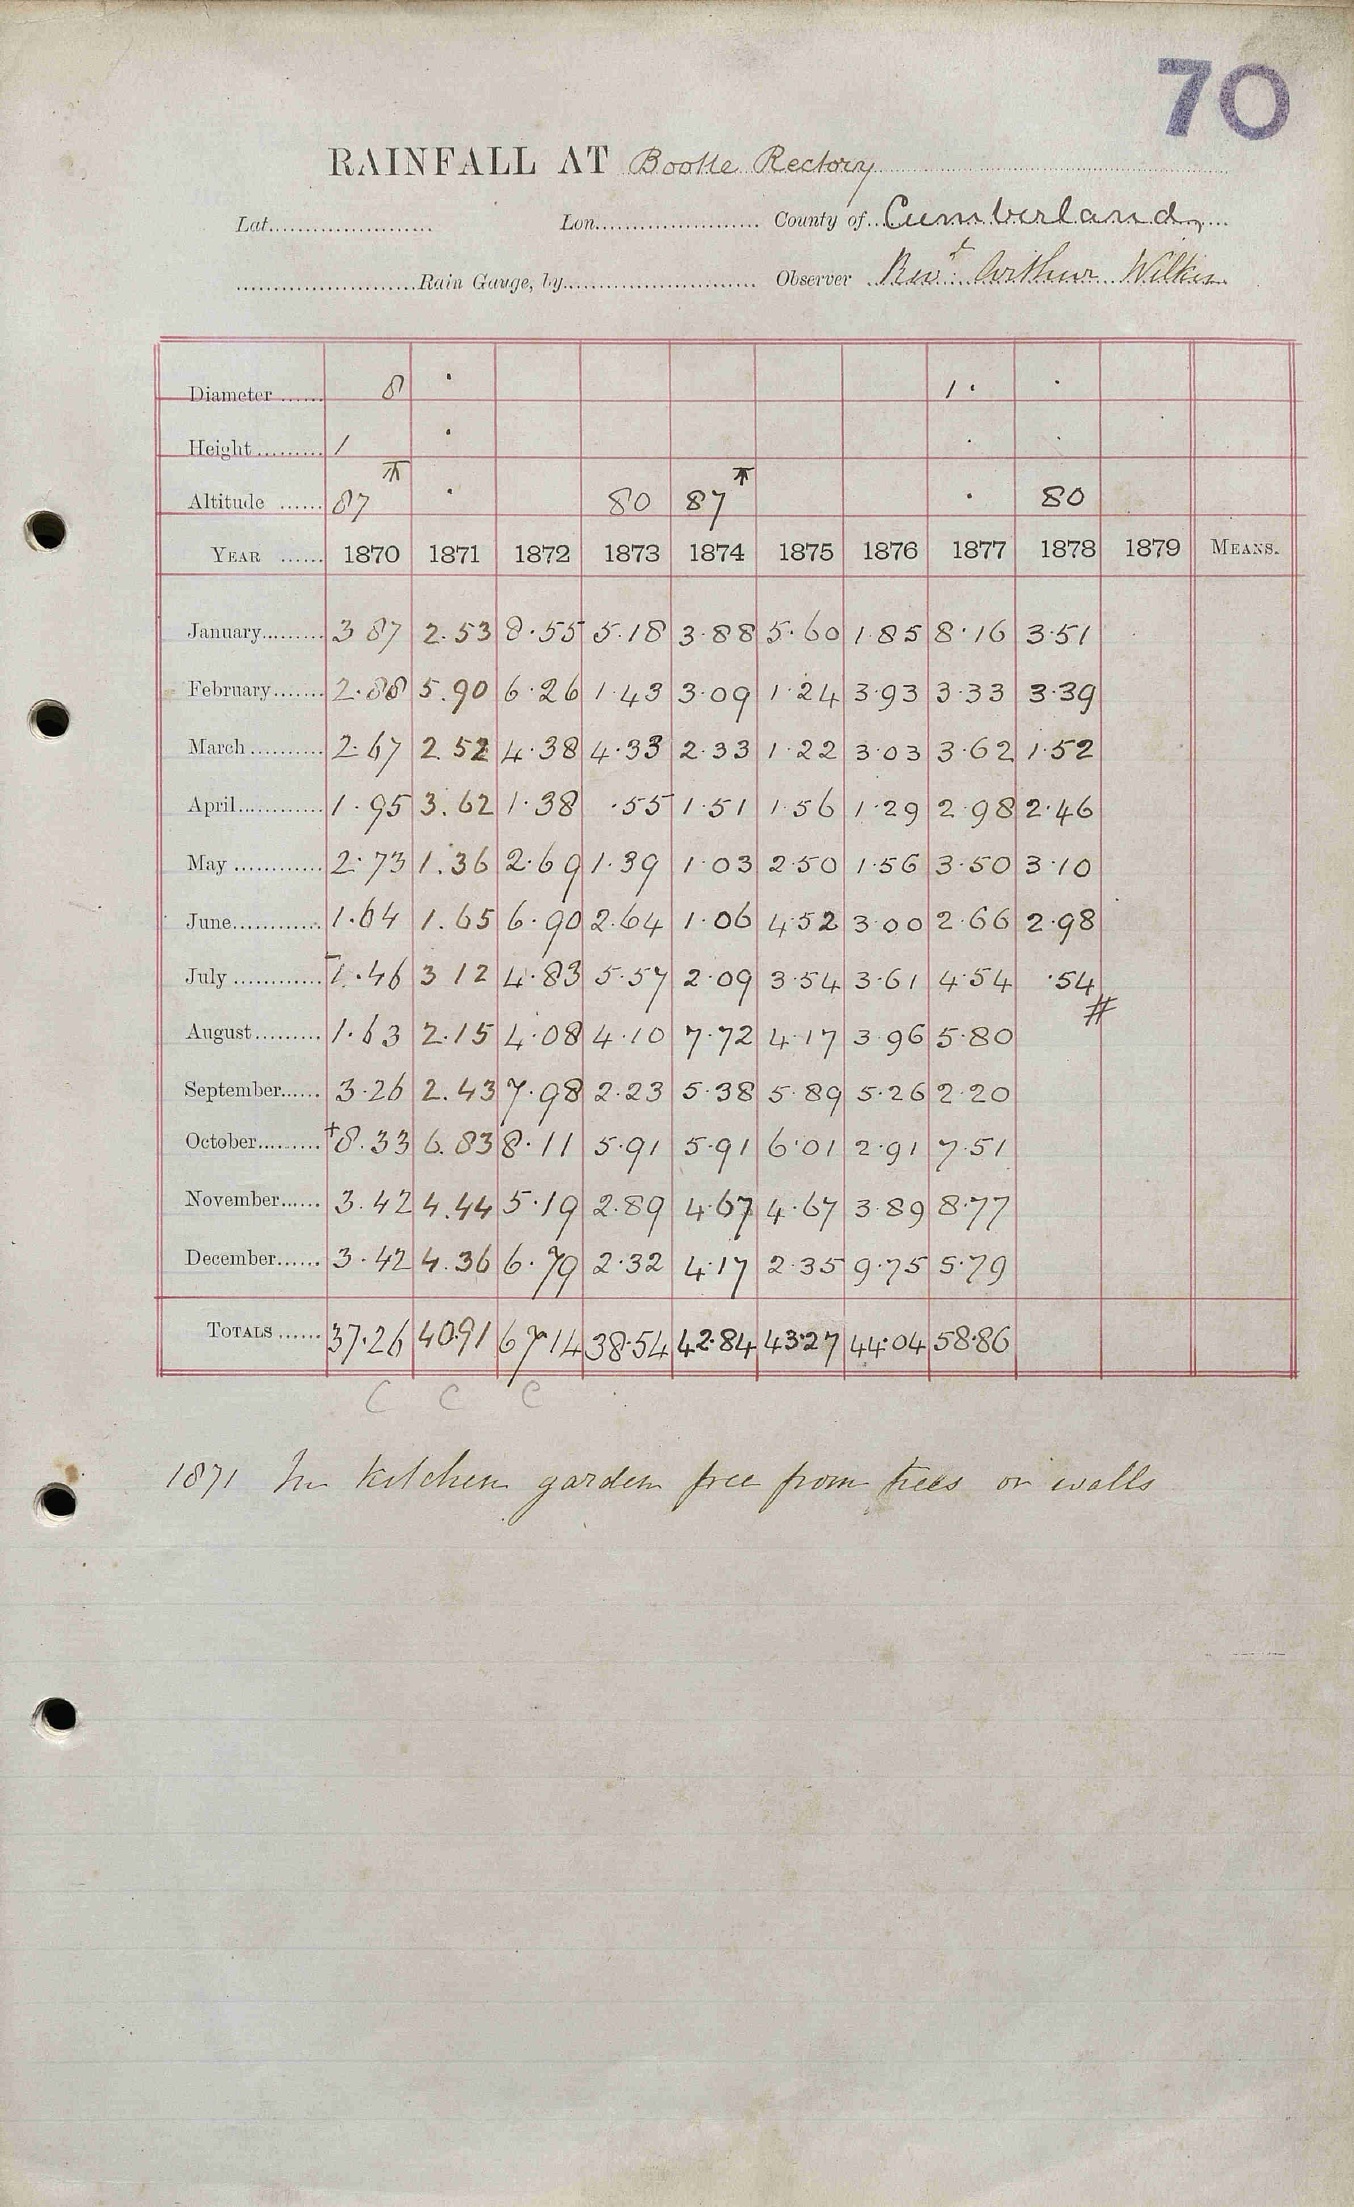 70
RAINFALL AT Bootle Rectory
Lat. Lon. County of Cumberland
Rain Gauge, by Observer Revd. Arthur Wilkin
Diameter 8 1
Height 1
Altitude 87 80 87 80
YEAR 1870 1871 1872 1873 1874 1875 1876 1877 1878 1879 MEANS.
January 3 87 2.53 8.55 5.18 3.88 5.60 1.85 8.16 3.51
February 2.88 5.90 6.26 1.43 3.09 1.24 3.93 3.33 3.39
March 2.67 2.52 4.38 4.33 2.33 1.22 3.03 3.62 1.52
April 1.95 3.62 1.38 .55 1.51 1.56 1.29 2.98 2.46
May 2.73 1.36 2.69 1.39 1.03 2.50 1.56 3.50 3.10
June 1.64 1.65 6.90 2.64 1.06 4.52 3.00 2.66 2.98
July 1.46 3 12 4.83 5.57 2.09 3.54 3.61 4.54 .54
#
August 1.63 2.15 4.08 4.10 7.72 4.17 3.96 5.80
September 3.26 2.43 7.98 2.23 5.38 5.89 5.26 2.20
October +8.33 6.83 8.11 5.91 5.91 6.01 2.91 7.51
November 3.42 4.44 5.19 2.89 4.67 4.67 3.89 8.77
December 3.42 4.36 6.79 2.32 4.17 2.35 9.75 5.79
TOTALS 37.26 40.91 67.14 38.54 42.84 43.27 44.04 58.86
C C C
1871 In kitchen garden free from trees or walls